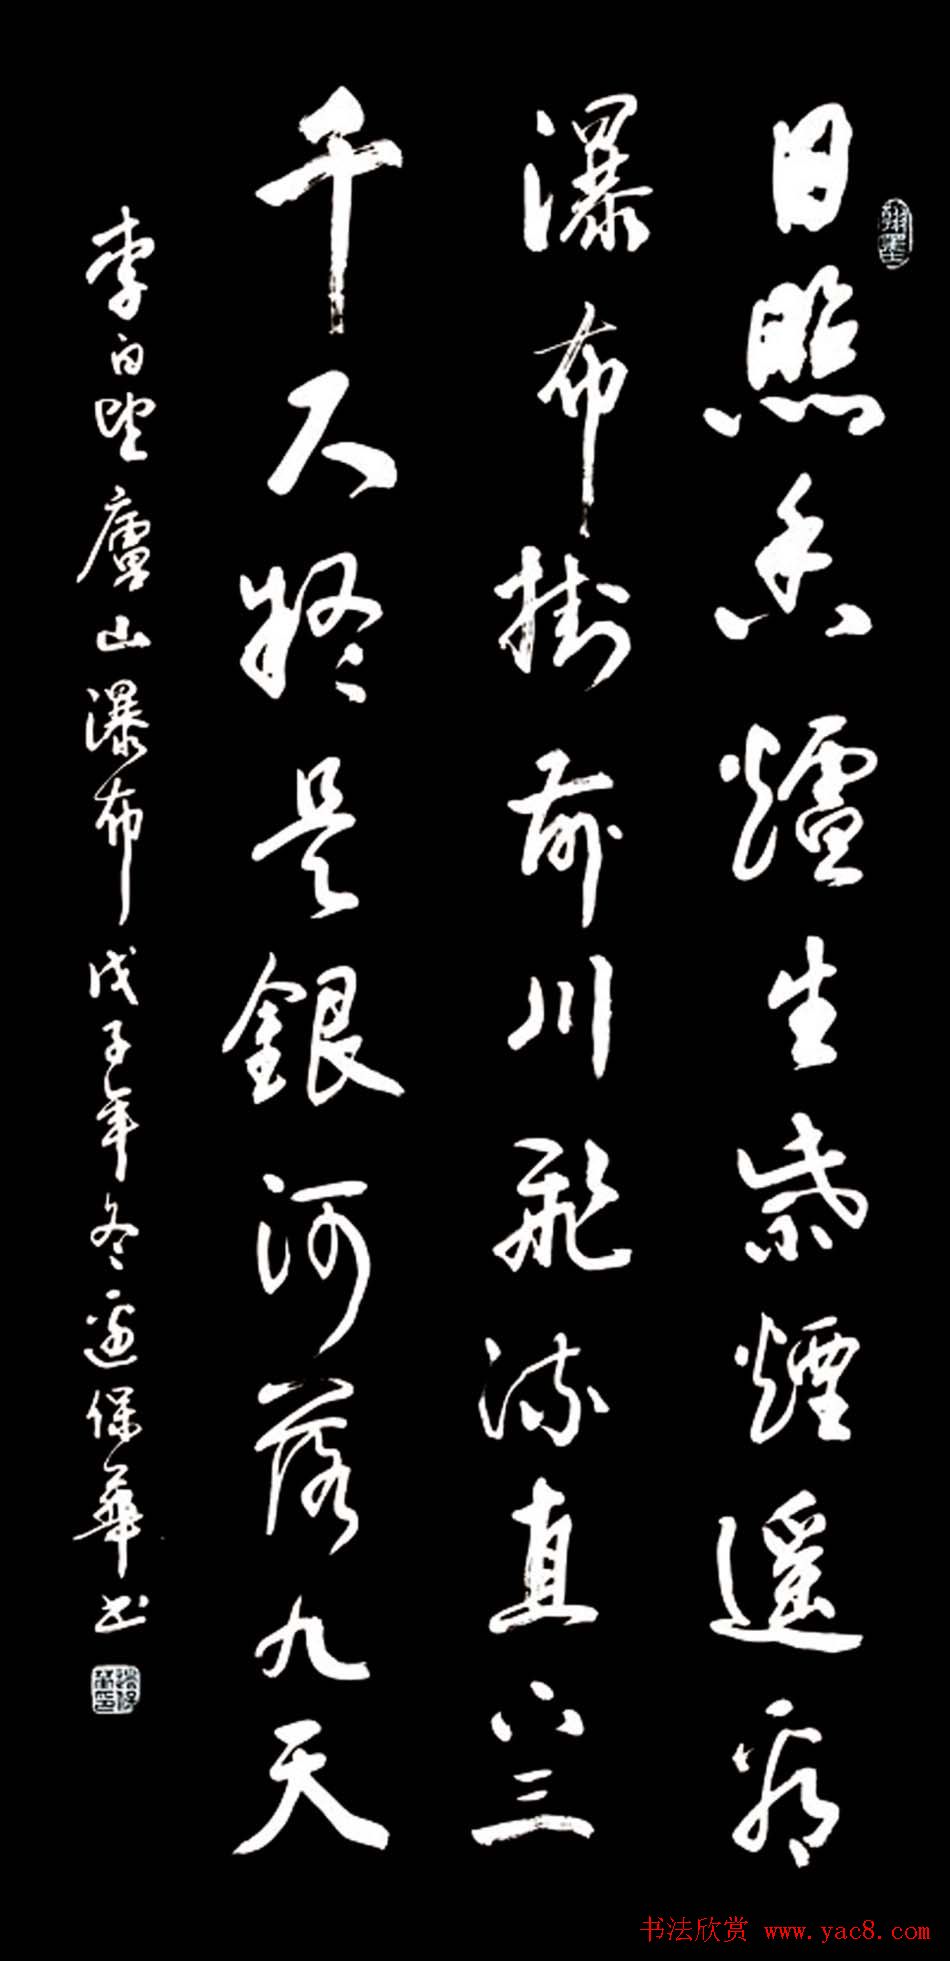 翰墨
日照香爐生紫煙遥看
瀑布掛前川飛流直下三
千尺疑是銀河落九天
李白望廬山瀑布戊子年冬邊保華书
书法欣赏 www.yac8.com